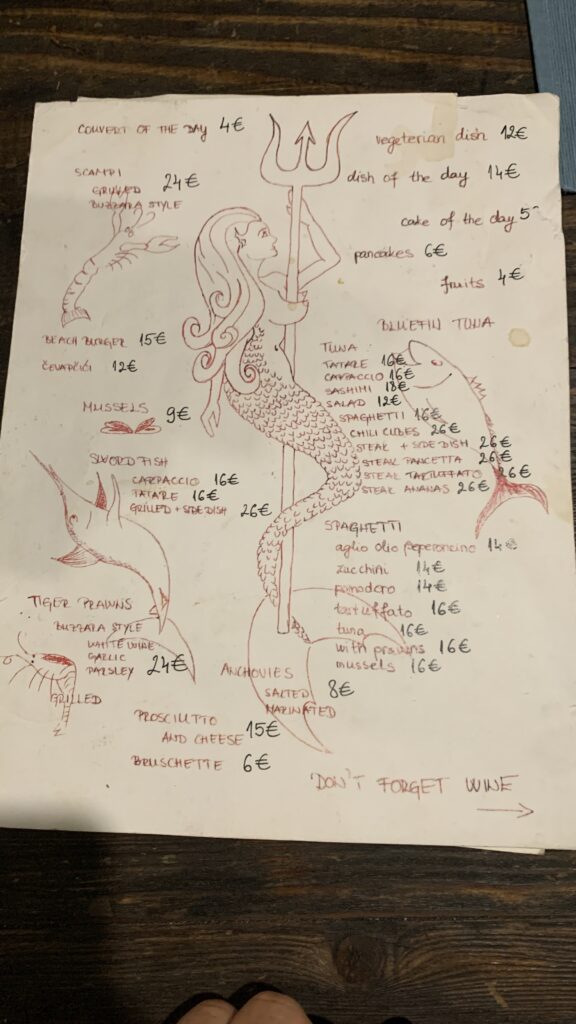 COUVERT OF THE DAY 4€
SCAMPI
GRILLED 24€
BUZZARA STYLE
BEACH BURGER 15€
ČEVAPČIĆI 12€
MUSSELS 9€
SWORDFISH
CARPACCIO 16€
TATARE 16€
GRILLED + SIDE DISH 26€
TIGER PRAWNS
BUZZARA STYLE
WHITE WINE
GARLIC
PARSLEY 24€
GRILLED
PROSCIUTTO
AND CHEESE 15€
BRUSCHETTE 6€
ANCHOVIES
SALTED 8€
MARINATED
vegeterian dish 12€
dish of the day 14€
cake of the day 5
pancakes 6€
fruits 4€
BLUEFIN TUNA
TUNA
TATARE 16€
CARPACCIO 16€
SASHIMI 18€
SALAD 12€
SPAGHETTI 16€
CHILI CUBES 26€
STEAK + SIDE DISH 26€
STEAK PANCETTA 26€
STEAK TARTUFFATO 26€
STEAK ANANAS 26€
SPAGHETTI
aglio olio peperoncino 14€
zucchini 14€
pomodoro 14€
tartuffato 16€
tuna 16€
with prawns 16€
mussels 16€
'DON'T FORGET WINE